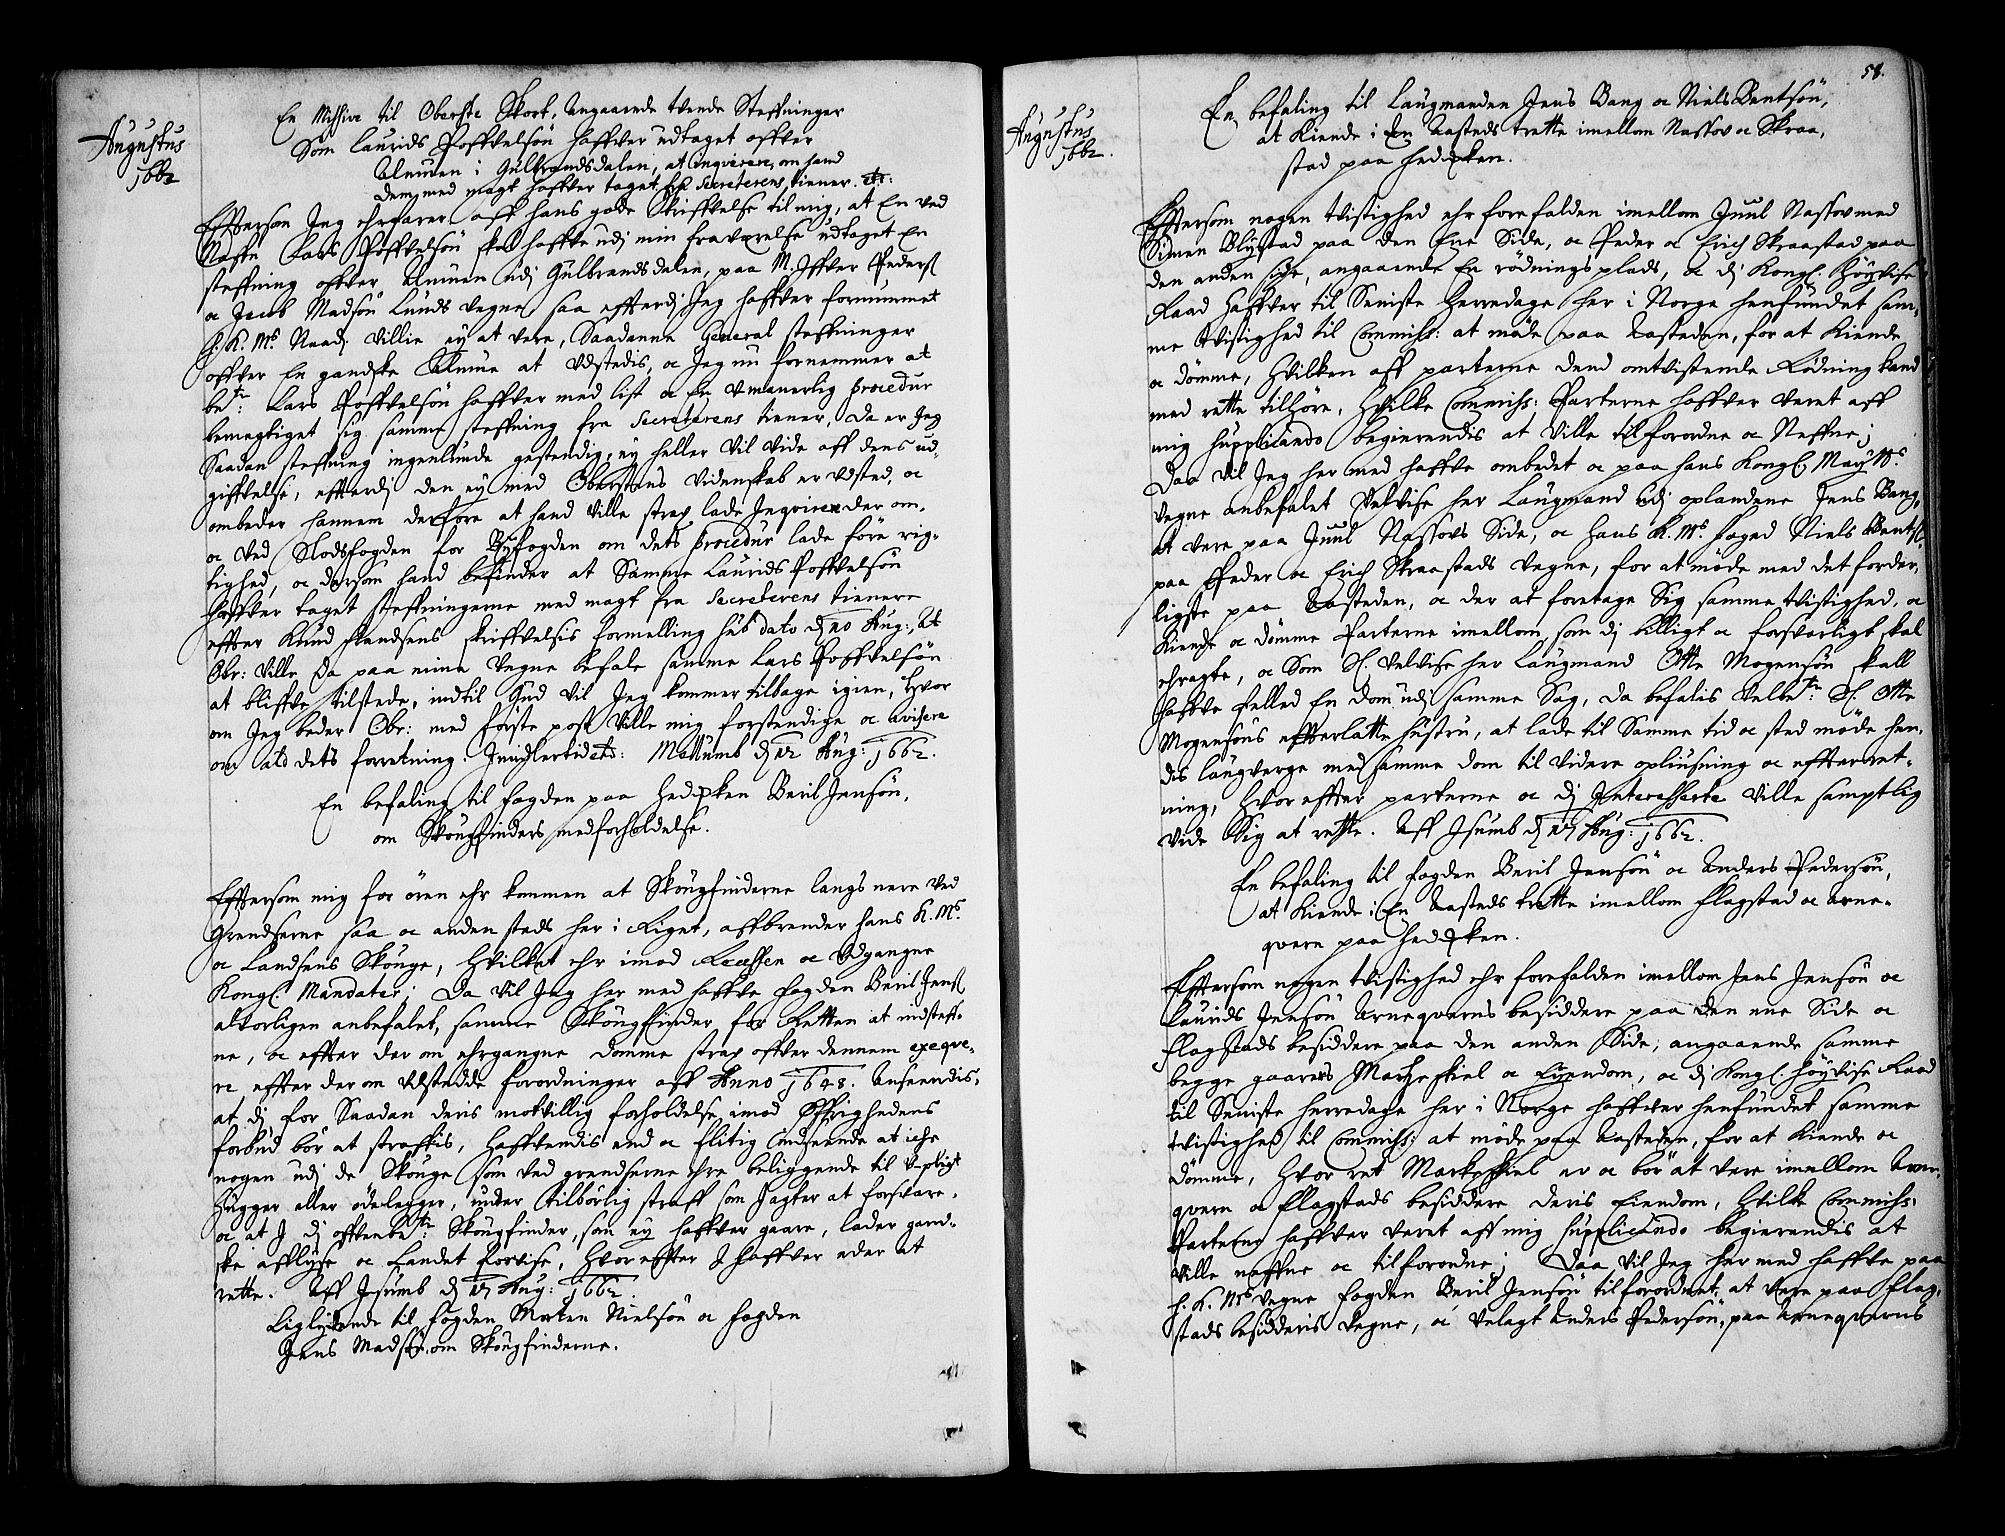 Augustus
1662
En Missive til Oberste Skort, Angaaende tvende Steffninger
Som Laurids Poffvelsön haffver udtaget offver
Almuen i Gulbrandsdalen, at inqvirere, om hand
dem med magt haffver taget fra Secreterens tiener. etc:
Effterson Jeg ehrfarer aff hans gode Skriffvelse til mig, at En ved
Naffn Lars Poffvelsön skal haffve udj min fraværelse udtaget En
steffning offver Almuen udj Gulbrandsdalen, paa M. Iffver Peders:
oc Jacob Madsön Lunds vegne saa efferdj Jeg haffver fornummet
h. K. Ms. Naad. Villie ey at vere, Saadanne General steffninger
offver En gandske Almue at Udstedis, oc Jeg nu fornemmer at
bete: Lars Poffvelsön haffver med list oc En Umanerlig procedur
bemegtiget sig samme steffning fra Secreterens tiener, Da er Jeg
Saadan steffning ingenlunde gestendig, ey heller vil vide aff dens ud-
giffvelse, efferdj den ey med Oberstens Videnskab er Udsted, oc
ombeder hannem derfore at hand ville strax lade Inqvirere der om,
oc ved Slodsfogden for Byfogden om dets procedur lade före rig-
tighed, oc dersom hand befinder at Samme Laurids Poffvelsön
haffver taget steffningerne med magt fra Secreterens tienere
effter Knud frandsens skriffvelsis formelling sub dato d. 10 Aug:, At
Obr: ville da paa mine vegne befale samme Lars Poffvelsön
at bliffve tilstede, indtil Gud vil Jeg kommer tilbage igien, Hvor
om Jeg beder Obr: med förste post ville mig forstendige oc avisere
om ald dets forretning. Imidlertid etc: Mossumb d. 12 Aug: 1662.
En befaling til fogden paa Hedmken Beril Jensön,
om Skougfinders medforholdelse.
Effterson mig for ören ehr kommen at Skougfinderne langs nere ved
Grendserne saa oc anden steds her i Riget, affbrender hans K. Ms.
oc Landsens Skouge, Hvilket ehr imod Recessen oc Udgangne
Kongl. Mandater; Da vil Jeg her med haffve fogden Beril Jens:
alvorligen anbefalet, samme Skougfinder for Retten at indsteff-
ne, oc effter der om ehrgangne domme strax offver dennem exeqve-
re effter der om Udstedde forordninger aff Anno 1648. Anseendis,
at dj for Saadan deris motvillig forholdelse imod Öffrighedens
forbud bör at straffis, Haffvendis end oc flitig indseende at iche
nogen udj de Skouge som ved grendserne ehre beliggende til Upligt
hugger eller ödelegger, under tilbörlig straff som Jagter at forsvare,
oc at I dj offvenbete: Skougfinder, som ey haffver gaare, lader gand-
ske afflyse oc Landet forvise, Hvor effter I haffver eder at
rette. Aff Isumb d. 17 Aug: 1662.
Liglydende til fogden Morten Nielsön oc fogden
Jens Madsön, om Skougfinderne.
58.
Augustus
1662.
En befaling til Laugmanden Jens Bang oc Niels Bentsön,
at Kiende i En Aasteds trette imellom Nassov oc Skraa,
stad paa Hedmken.
Effterson nogen tvistighed ehr forefalden imellom Juul Nassov med
Simen Blystad paa den Ene Side, oc Peder oc Erich Skraastad paa
den anden side, angaaende En rödnings plads, oc dj Kongl. Höyvise
Raad haffver til Seniste Herredage her i Norge henfundet sam-
me tvistighed til Commiss: at möde paa Aasteden, for at Kiende
oc dömme, Hvilken aff parterne dend omtvistende Rödning kand
med rette tilhöre, Hvilke Commiss: Parterne haffver veret aff
mig supplicando begierendis at ville tilforordne oc Neffne;
Daa vil Jeg her med haffve ombedet oc paa hans Kongl. Mayts.
vegne anbefalet Velvise her Laugmand udj oplandene Jens Bang,
at vere paa Juul Nassovs Side, oc hans K. Ms. foged Niels Bents:
paa Peder oc Erich Skraastads vegne, for at möde med det forder,
ligste paa Aasteden, oc der at foretage Sig samme tvistighed, oc
Kiende oc dömme Parterne imellom som dj billigt oc forsvarligt skal
ehragte, oc Som Sl. velvise her Laugmand Otte Mogensön skall
haffve felled En dom udj samme Sag, Da befalis velbte: Sl. Otte
Mogensöns effterlatte hustru, at lade til Samme tid oc sted möde hen-
dis laugverge med samme dom til videre opliusning oc effterret-
ning, Hvor effter parterne oc dj Interesserte ville samptlig
vide Sig at rette. Aff Isumb d. 17 Aug: 1662.
En befaling til fogden Beril Jensön oc Anders Pedersön,
at Kiende i En Aasteds trette imellom Flagstad oc Arne-
qvern paa Hedmken.
Effterson nogen tvistighed ehr forefalden imellom Jens Jensön oc
Laurids Jensön Arneqverns besiddere paa den ene Side oc
Flagstads besiddere paa den anden Side, angaaende samme
begge gaarers Marcheskiel oc Eyendom, oc dj Kongl. Höyvise Raad
til Seniste Herredage her i Norge haffver henfundet samme
tvistighed til Commiss: at möde paa Aasteden, for at Kiende oc
dömme, Hvor ret Marckeskiel er oc bör at vere imellom Arne-
qvern oc Flagstads besiddere deris Eiendom, Hvilke Commiss:
Parterne haffver veret aff mig supplicando begierendis at
ville neffne oc tilforordne; Daa vil Jeg her med haffve paa
h. K. Ms. vegne fogden Beril Jensön tilforordnet, at vere paa Flag-
stads besidderis vegne, oc Velagt Anders Pedersön, paa Arneqverns